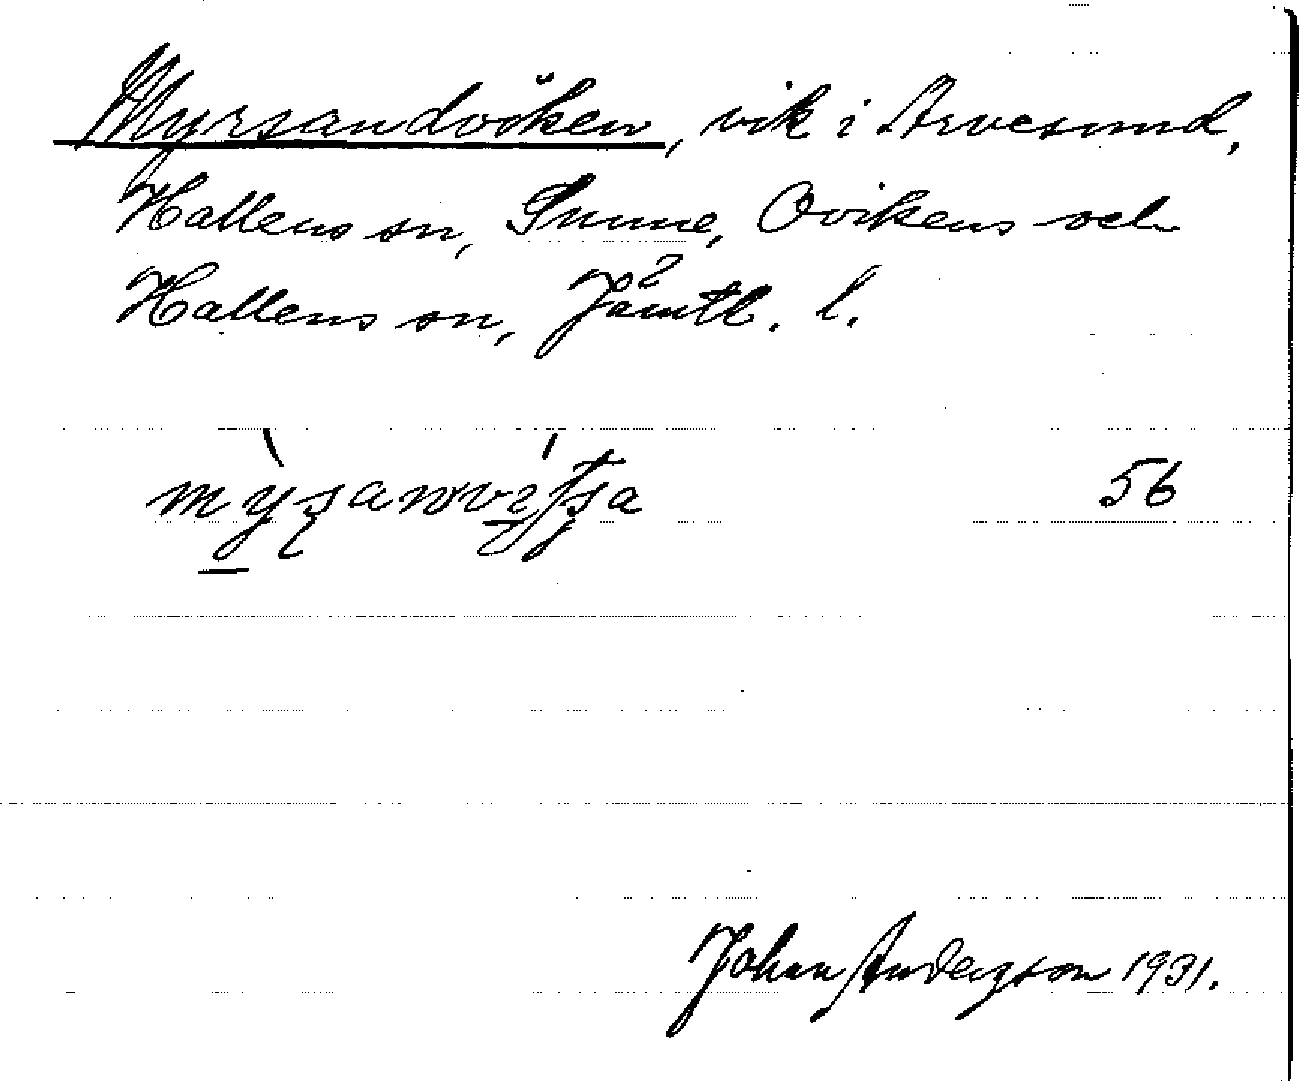 Myrsandviken, vik i Arvesund,
Hallens sn, Sunne, Ovikens och
Hallens sn, Jämtl. l.
56
Johan Anderzson 1931.